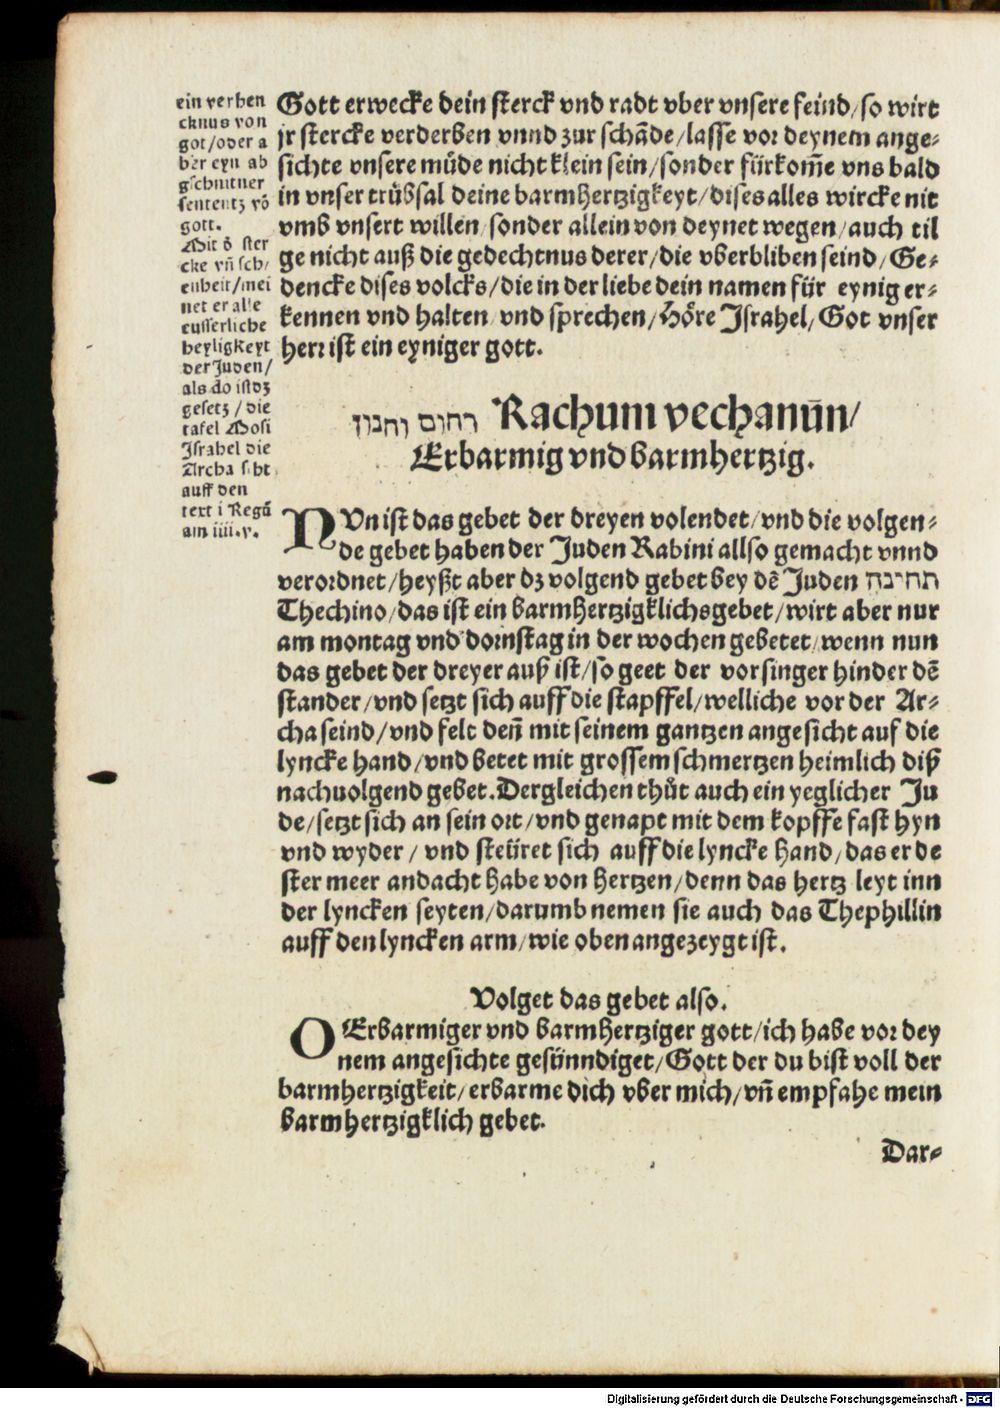 ein verhen
cknus von
got/oder a
ber eyn ab
gschnitner
sententz võ
gott.
Mit d ster
cke vñ sch/
enheit/mei
net er alle
eusserliche
heyligkeyt
der Juden/
als do ist dz
gesetz/die
tafel Mosi
Israhel die
Archa siht
auff den
text i Regũ
am iiii.v.
Gott erwecke dein sterck vnd radt vber vnsere feind/so wirt
jr stercke verderben vnnd zur schãde/lasse vor deynem ange-
sichte vnsere müde nicht klein sein/sonder fürkom̃e vns bald
in vnser trübsal deine barmhertzigkeyt/dises alles wircke nit
vmb vnsert willen/sonder allein von deynet wegen/auch til
ge nicht auß die gedechtnus derer/die vberbliben seind/Ge-
dencke dises volcks/die in der liebe dein namen für eynig er-
kennen vnd halten/vnd sprechen/Höre Israhel/Got vnser
herr ist ein eyniger gott.
רחום וחנון Rachum vechanũn/
Erbarmig vnd barmhertzig.
NVn ist das gebet der dreyen volendet/vnd die volgen-
de gebet haben der Juden Rabini allso gemacht vnnd
verordnet/heyßt aber dz volgend gebet bey dẽ Juden תחינה
Thechino/das ist ein barmhertzigklichs gebet/wirt aber nur
am montag vnd dornstag in der wochen gebetet/wenn nun
das gebet der dreyer auß ist/so geet der vorsinger hinder dẽ
stander/vnd setzt sich auff die stapffel/welliche vor der Ar-
cha seind/vnd felt deñ mit seinem gantzen angesicht auf die
lyncke hand/vnd betet mit grossem schmertzen heimlich diß
nachuolgend gebet. Dergleichen thůt auch ein yeglicher Ju
de/setzt sich an sein ort/vnd genapt mit dem kopffe fast hyn
vnd wyder/vnd steüret sich auff die lyncke hand/das er de
ster meer andacht habe von hertzen/denn das hertz leyt inn
der lyncken seyten/darumb nemen sie auch das Thephillin
auff den lyncken arm/wie oben angezeygt ist.
Volget das gebet also.
O Erbarmiger vnd barmhertziger gott/ich habe vor dey
nem angesichte gesünndiget/Gott der du bist voll der
barmhertzigkeit/erbarme dich vber mich/vñ empfahe mein
barmhertzigklich gebet.
Dar-
Digitalisierung gefördert durch die Deutsche Forschungsgemeinschaft - DFG